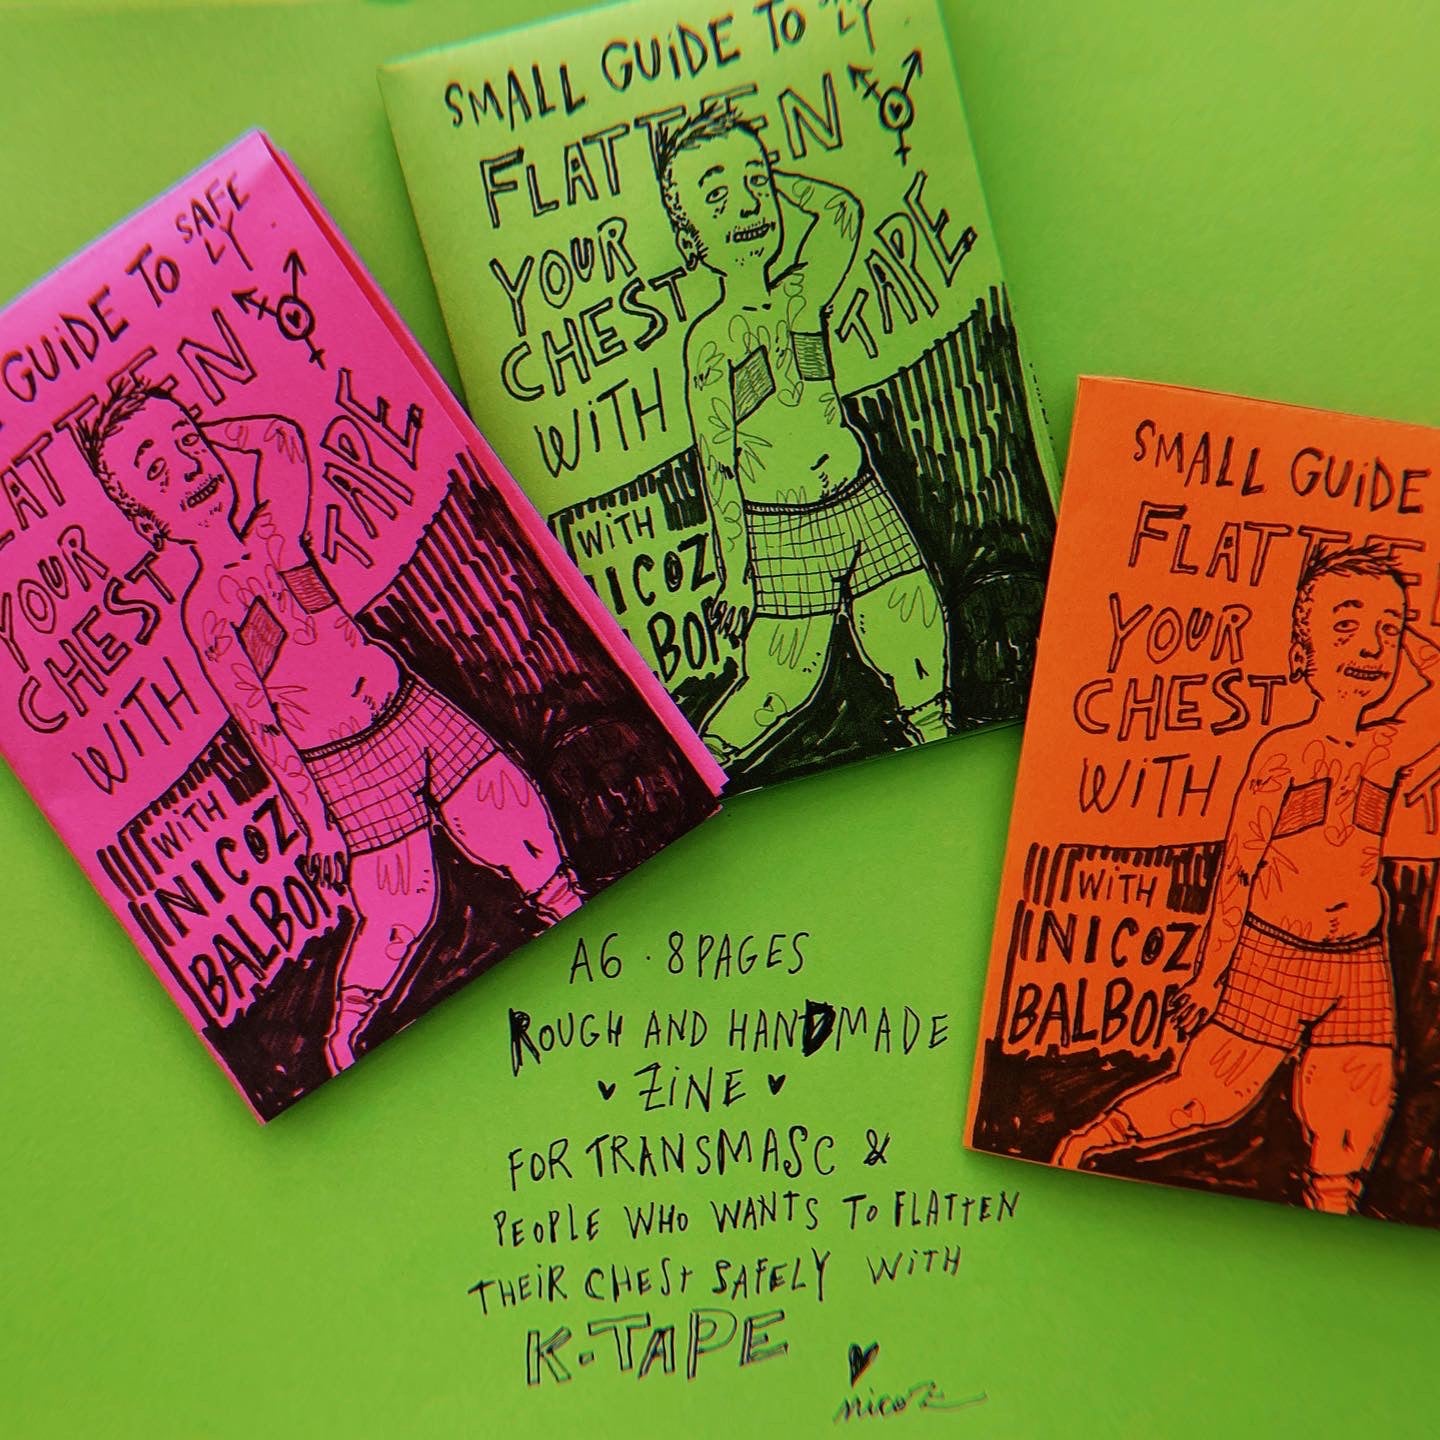 SMALL GUIDE TO SAFE
LY
FLATTEN
YOUR
CHEST
WITH
TAPE.
WITH
NICOZ
BALBO
GUIDE TO SAFE
LY
FLATTEN
YOUR
CHEST
WITH
TAPE.
WITH
NICOZ
BALBO
SMALL GUIDE
FLATTE
YOUR
CHEST
WITH
WITH
NICOZ
BALBO
A6 · 8 PAGES
ROUGH AND HANDMADE
♥ ZINE ♥
FOR TRANSMASC &
PEOPLE WHO WANTS TO FLATTEN
THEIR CHEST SAFELY WITH
K-TAPE
♥
nicoz